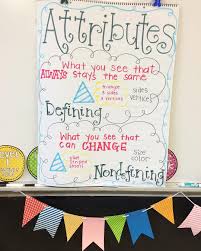 Attributes
What you see that
ALWAYS stays the same
triangle
3 sides
3 vertices
sides
vertices
Defining
What you see that
can CHANGE
size
color
Nondefining
LEVEL